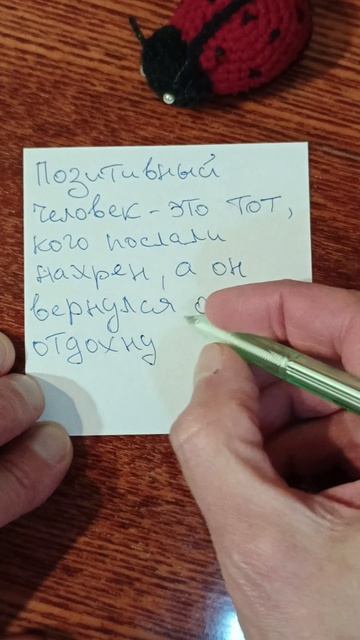 Позитивный
человек - это тот,
кого послали
нахрен, а он
вернулся
отдохну